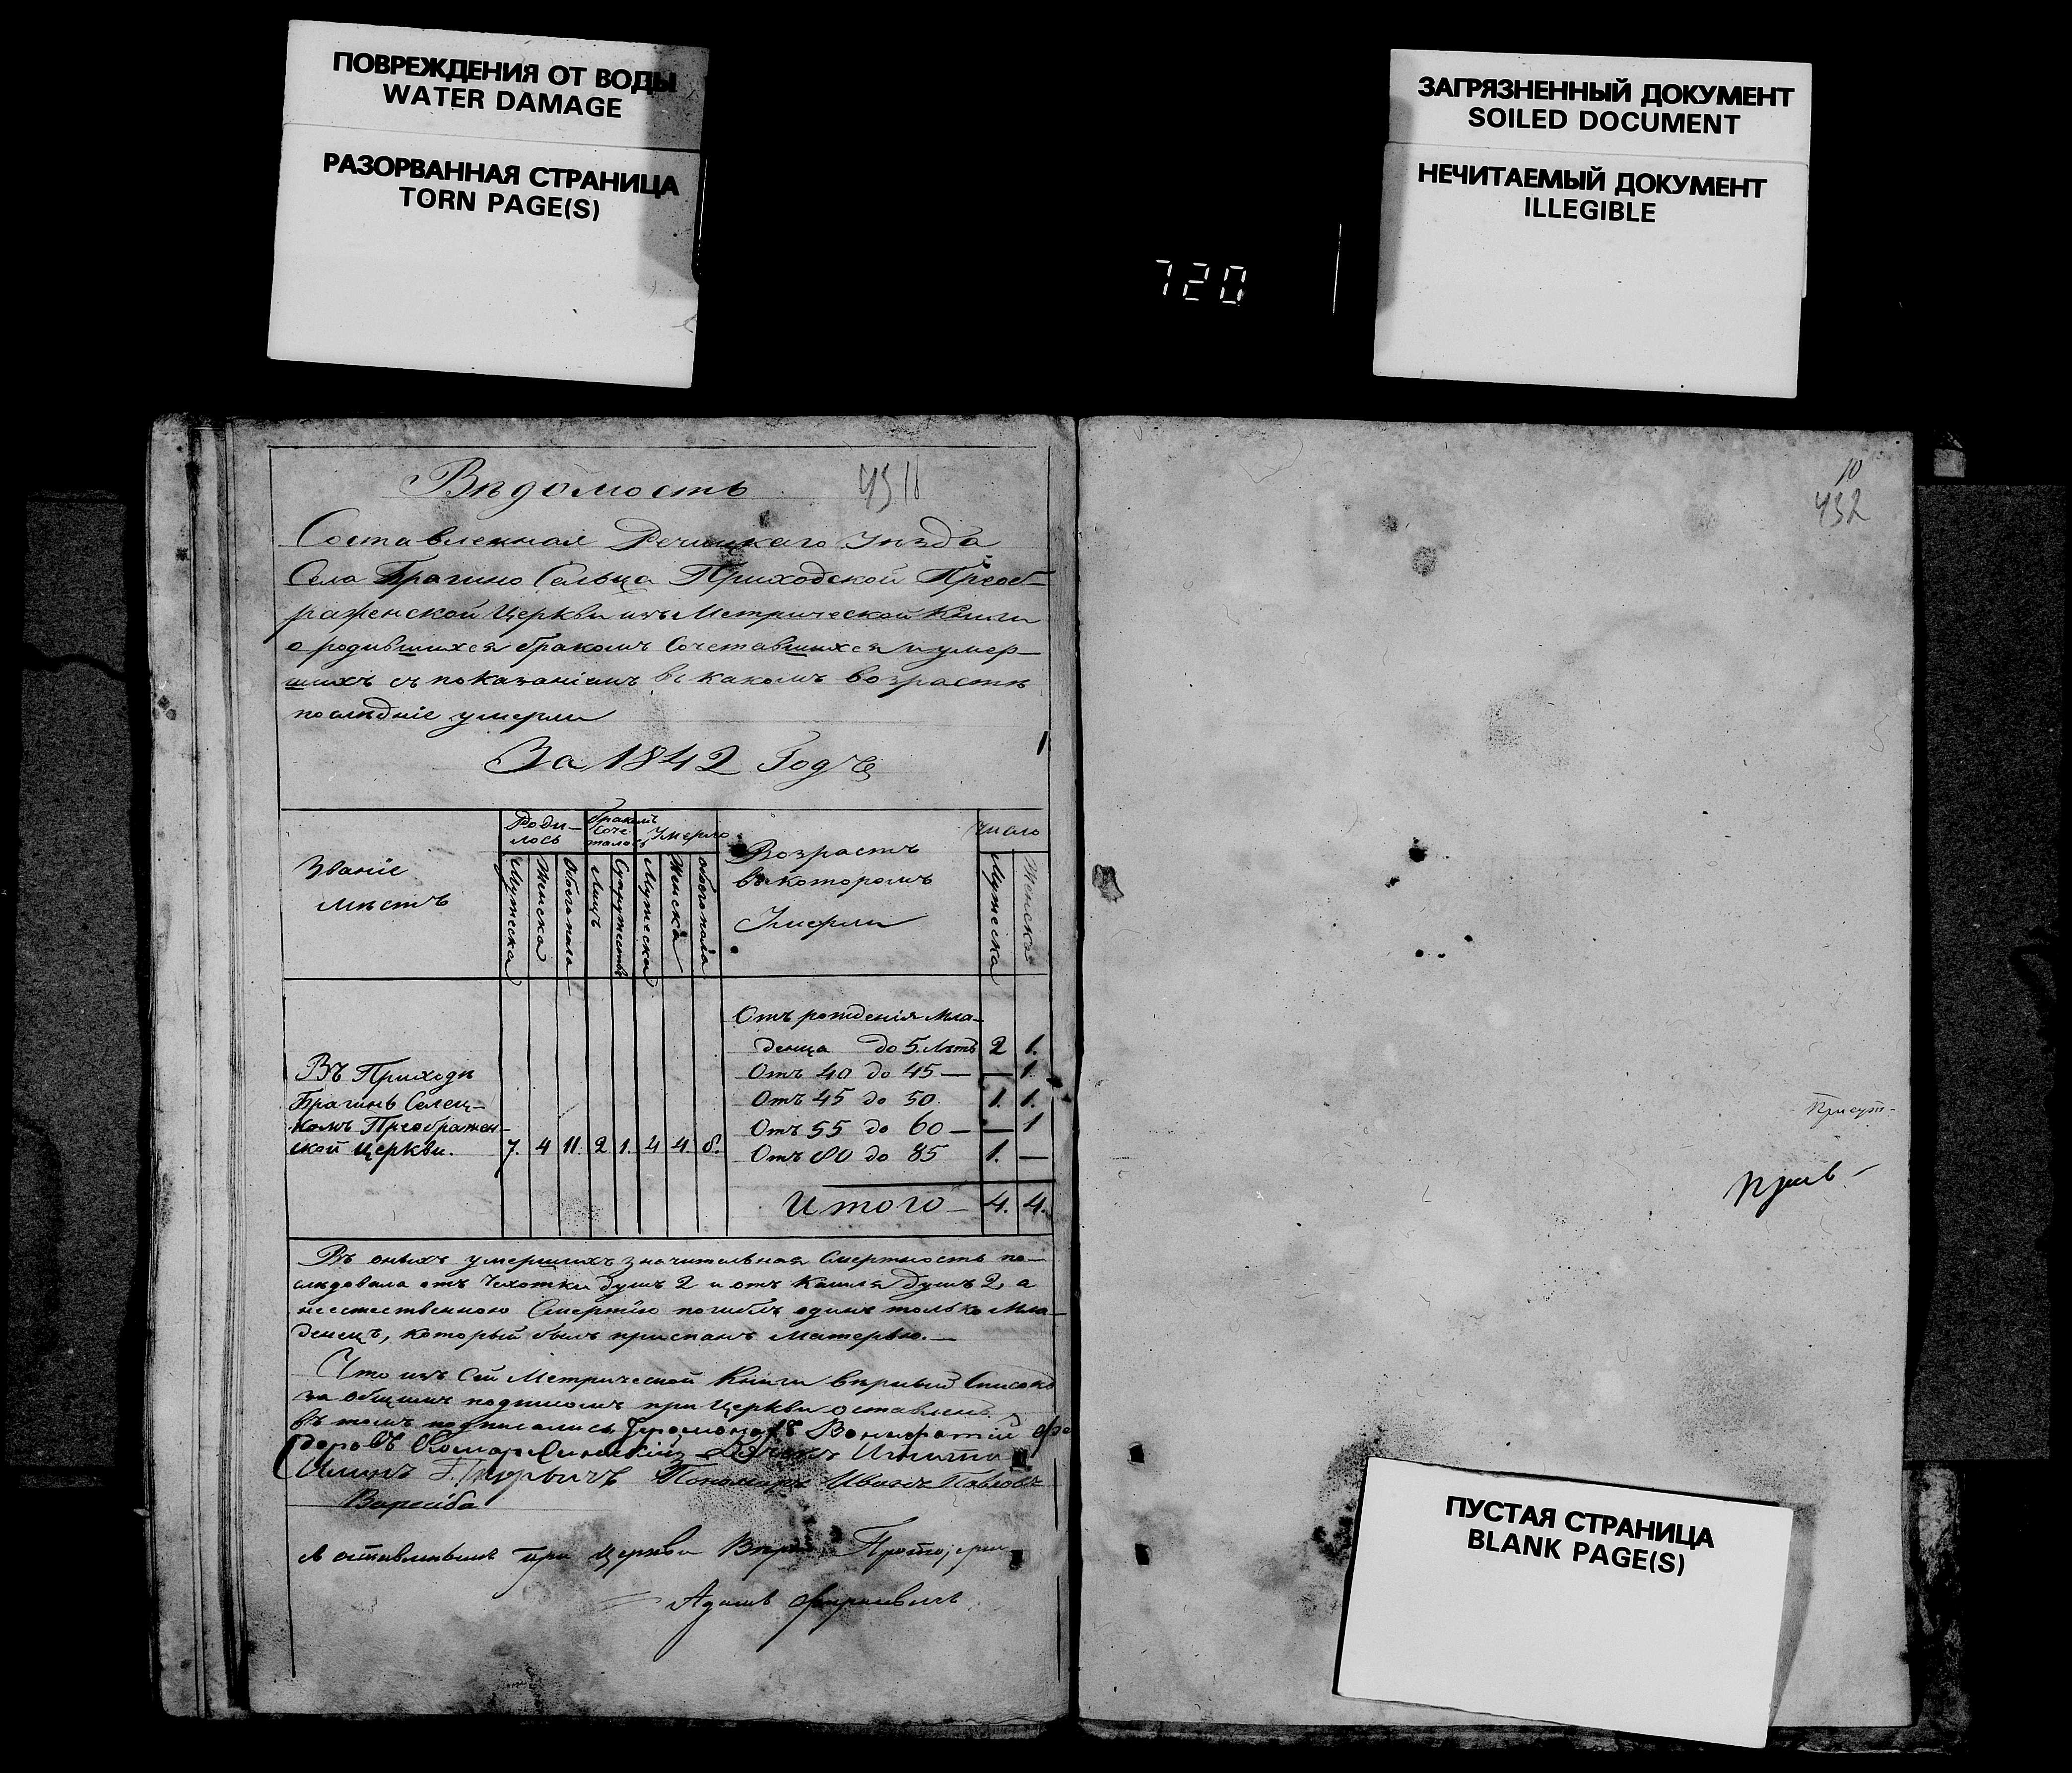 ПОВРЕЖДЕНИЯ ОТ ВОДЫ
WATER DAMAGE
РАЗОРВАННАЯ СТРАНИЦА
TORN PAGE(S)
720
ЗАГРЯЗНЕННЫЙ ДОКУМЕНТ
SOILED DOCUMENT
НЕЧИТАЕМЫЙ ДОКУМЕНТ
ILLEGIBLE
Вѣдомость
Составленная Речицкаго Уѣзда
Села Брагино Сельца Приходской Преоб-
раженской Церкви изъ Метрической Книги
о родившихся бракомъ Сочетавшихся и умер-
шихъ съ показаніемъ въ какомъ возрастѣ
послѣдніе умерли
За 1842 Годъ
Званіе мѣстъ
Роди-
лось
бракомъ
Соче
талось
Умерло
Возрастъ
въ которомъ
Умерли
Число
Мужеска
Женска
Обоего пола
Лицъ
Супружествъ
Мужеска
Женска
обоего пола
Мужеска
Женска
Отъ рожденія мла-
денца до 5. лѣтъ 2 1.
Отъ 40 до 45 — — 1.
Отъ 45 до 50. 1. 1.
Отъ 55 до 60 — — 1
Отъ 80 до 85 1. —
Итого — 4. 4.
Въ Приходѣ
Брагинъ Селец-
комъ Преображен-
ской Церкви. 7. 4 11. 2 1. 4 4. 8.
Въ оныхъ умершихъ значительная Смертность по-
слѣдовала отъ Чахотки душъ 2 и отъ Кашля душъ 2, а
неестественною Смертію погибъ одинъ только мла-
денецъ, который былъ приспанъ матерью. —
Что изъ Сей Метрической Книги вѣрный Списокъ
за общимъ подписомъ при Церкви оставленъ
въ томъ подписались Іеромонахъ Вонифатій
Дьячекъ
Пономарь Иванъ Павловъ
при Церкви
Адамъ
10
432
ПУСТАЯ СТРАНИЦА
BLANK PAGE(S)